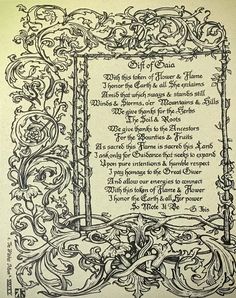 Gift of Gaia
With this token of Flower & Flame
I honor the Earth & all She Enclaims
Amid that which swaggs & stands still
Winds & Storms, o'er Mountains & Hills
We give thanks for the Herbs
The Soil & Roots
We give thanks to the Ancestors
For the Bounties & Fruits
As sacred this Flame is sacred this Land
I ask only for Guidance that seeks to expand
Upon pure intentions & humble respect
I pay homage to the Great Giver
And allow our energies to connect
With this token of Flame & Flower
I honor the Earth & all Her power
So Mote It Be